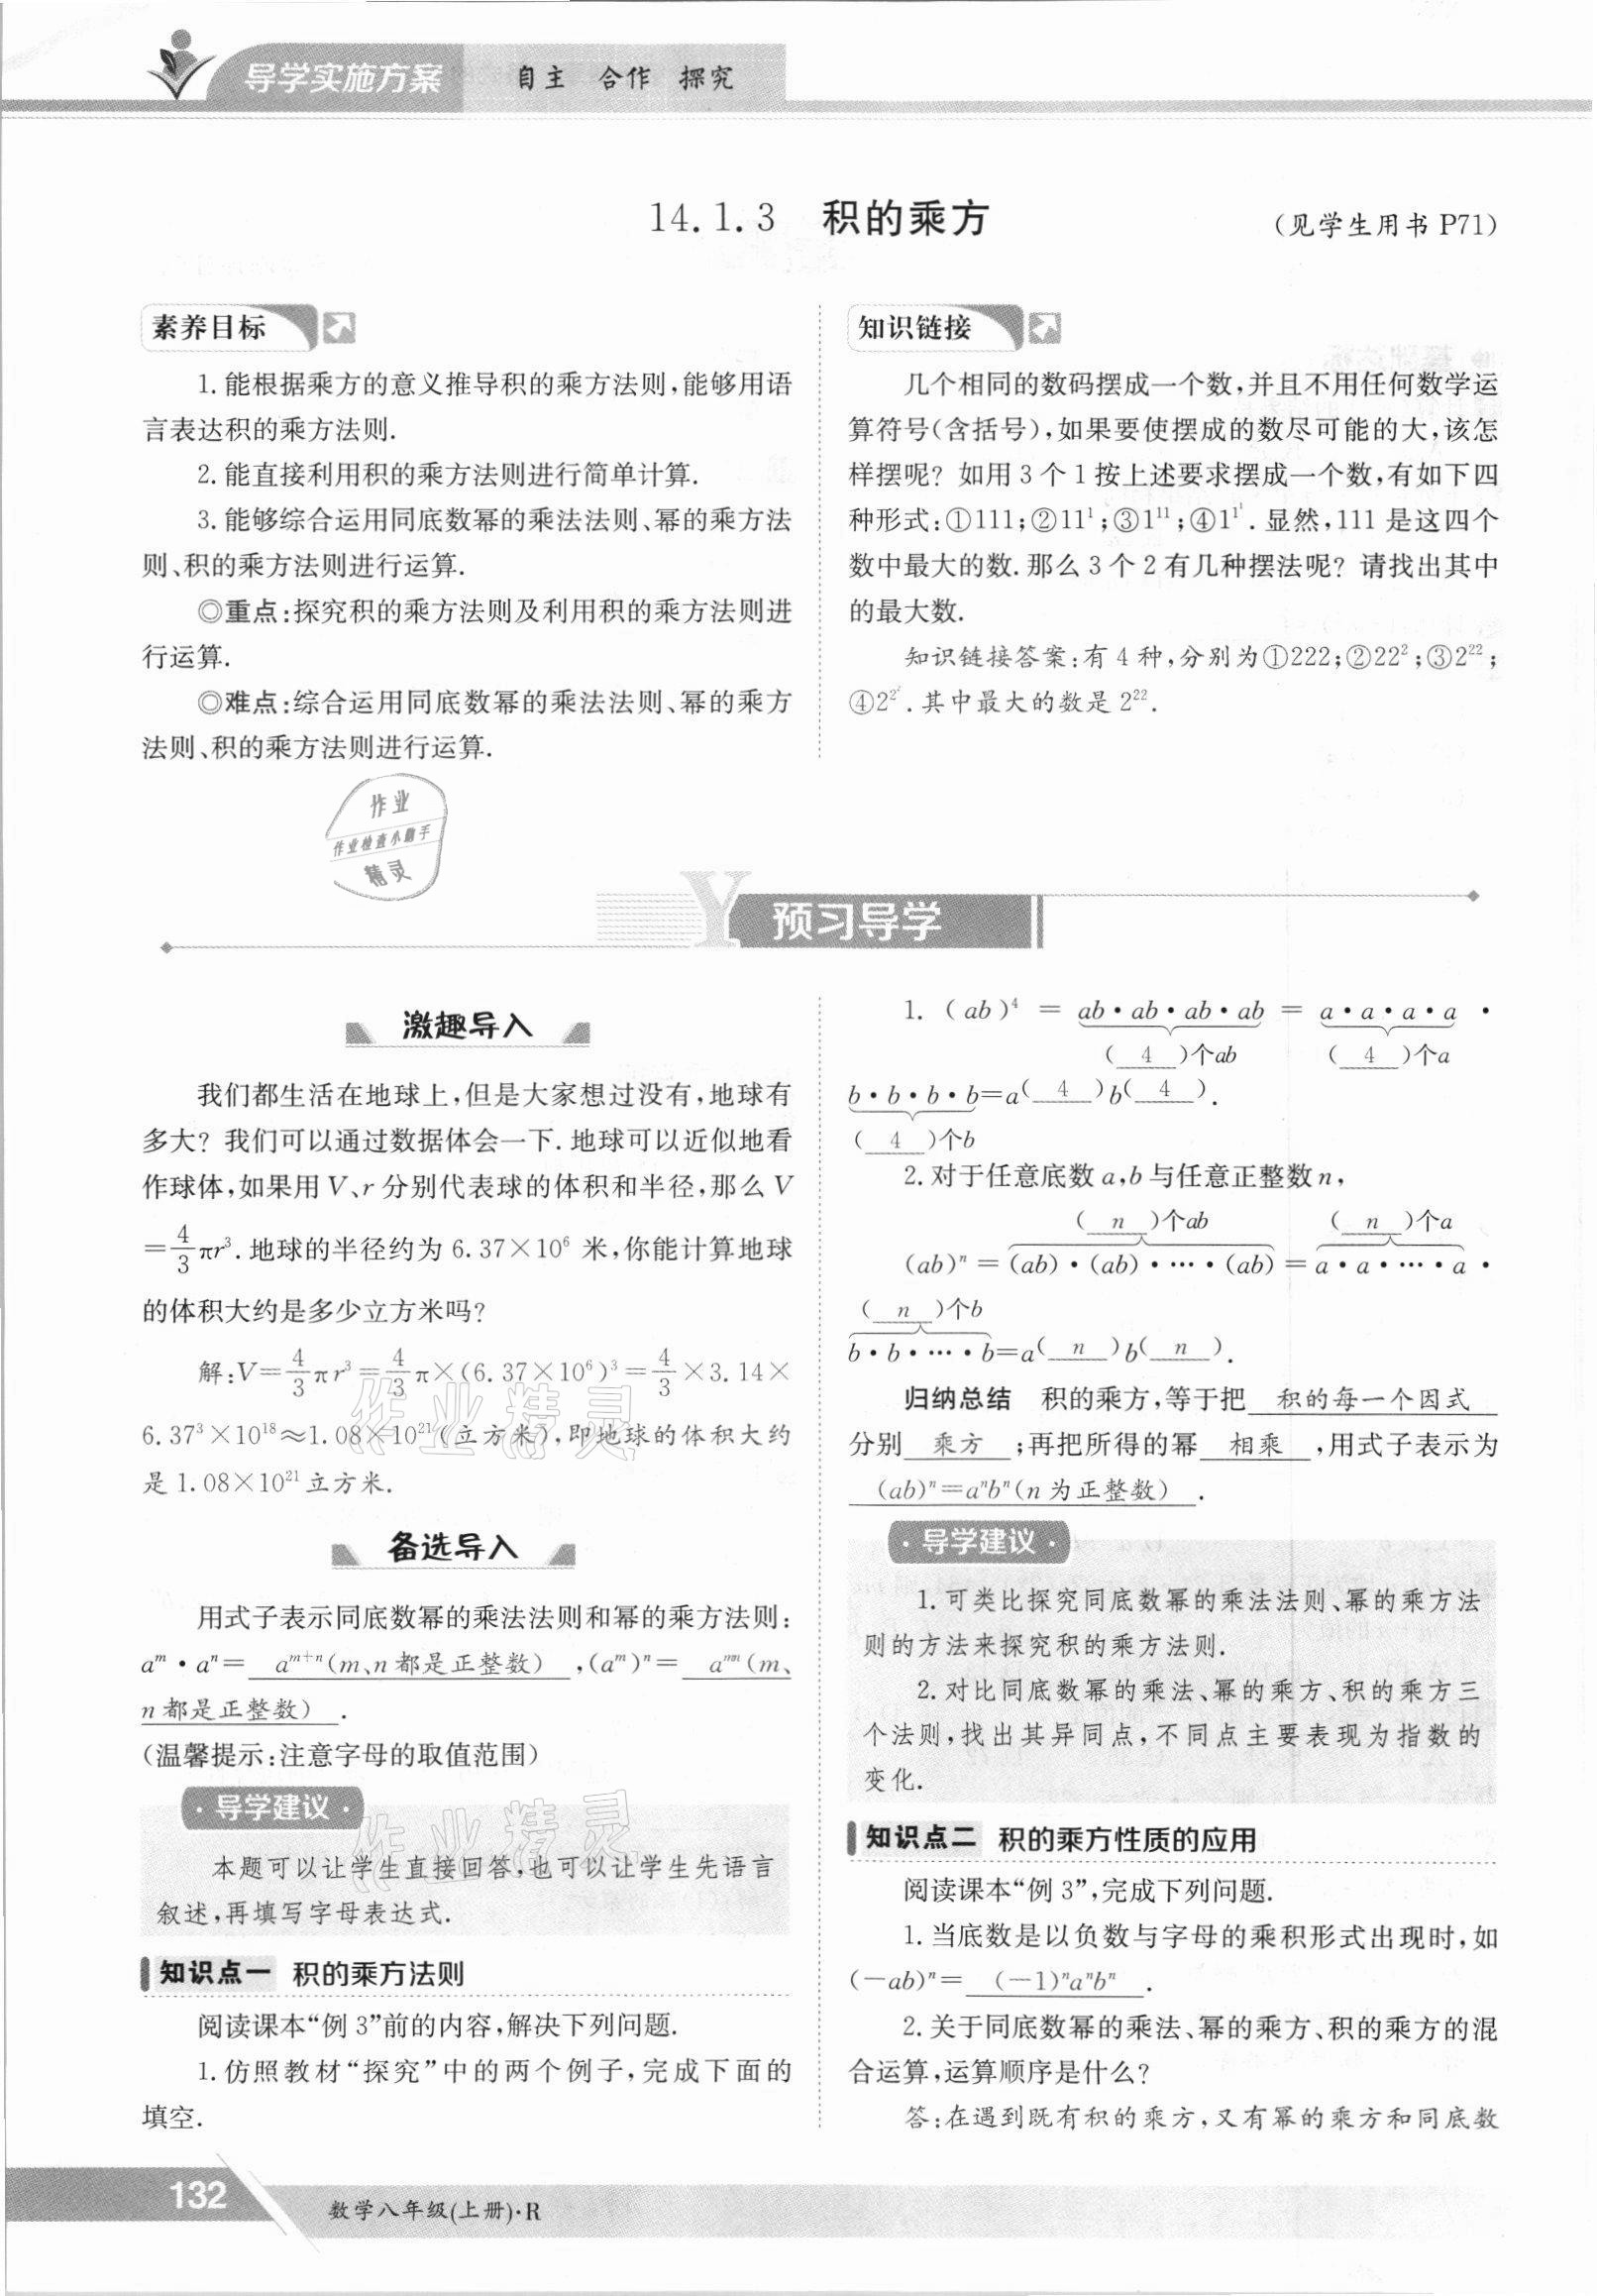 导学实施方案 自主 合作 探究
14.1.3 积的乘方 (见学生用书 P71)
素养目标
1.能根据乘方的意义推导积的乘方法则,能够用语
言表达积的乘方法则.
2.能直接利用积的乘方法则进行简单计算.
3.能够综合运用同底数幂的乘法法则、幂的乘方法
则、积的乘方法则进行运算.
◎重点:探究积的乘方法则及利用积的乘方法则进
行运算.
◎难点:综合运用同底数幂的乘法法则、幂的乘方
法则、积的乘方法则进行运算.
知识链接
几个相同的数码摆成一个数,并且不用任何数学运
算符号(含括号),如果要使摆成的数尽可能的大,该怎
样摆呢? 如用 3 个 1 按上述要求摆成一个数,有如下四
种形式:①111;②11¹;③1¹¹;④1^{1^1}.显然,111 是这四个
数中最大的数.那么 3 个 2 有几种摆法呢? 请找出其中
的最大数.
知识链接答案:有 4 种,分别为①222;②22²;③2²²;
④2^{2^2}.其中最大的数是 2²².
作业
作业检查小助手
精灵
Y 预习导学
激趣导入
我们都生活在地球上,但是大家想过没有,地球有
多大? 我们可以通过数据体会一下.地球可以近似地看
作球体,如果用 V、r 分别代表球的体积和半径,那么 V
=4/3πr³.地球的半径约为 6.37×10⁶ 米,你能计算地球
的体积大约是多少立方米吗?
解:V=4/3πr³=4/3π×(6.37×10⁶)³=4/3×3.14×
6.37³×10¹⁸≈1.08×10²¹(立方米),即地球的体积大约
是 1.08×10²¹ 立方米.
作业精灵
备选导入
用式子表示同底数幂的乘法法则和幂的乘方法则:
aᵐ·aⁿ= aᵐ⁺ⁿ(m、n 都是正整数) ,(aᵐ)ⁿ= aᵐⁿ(m、
n 都是正整数) .
(温馨提示:注意字母的取值范围)
·导学建议·
本题可以让学生直接回答,也可以让学生先语言
叙述,再填写字母表达式.
作业精灵
知识点一 积的乘方法则
阅读课本“例 3”前的内容,解决下列问题.
1.仿照教材“探究”中的两个例子,完成下面的
填空.
1. (ab)⁴ = ab·ab·ab·ab = a·a·a·a ·
( 4 )个ab ( 4 )个a
b·b·b·b=a( 4 )b( 4 ).
( 4 )个b
2.对于任意底数 a,b 与任意正整数 n,
( n )个ab ( n )个a
(ab)ⁿ=(ab)·(ab)·…·(ab)=a·a·…·a·
( n )个b
b·b·…·b=a( n )b( n ).
归纳总结 积的乘方,等于把 积的每一个因式
分别 乘方 ;再把所得的幂 相乘 ,用式子表示为
(ab)ⁿ=aⁿbⁿ(n 为正整数) .
·导学建议·
1.可类比探究同底数幂的乘法法则、幂的乘方法
则的方法来探究积的乘方法则.
2.对比同底数幂的乘法、幂的乘方、积的乘方三
个法则,找出其异同点,不同点主要表现为指数的
变化.
知识点二 积的乘方性质的应用
阅读课本“例 3”,完成下列问题.
1.当底数是以负数与字母的乘积形式出现时,如
(-ab)ⁿ= (-1)ⁿaⁿbⁿ .
2.关于同底数幂的乘法、幂的乘方、积的乘方的混
合运算,运算顺序是什么?
答:在遇到既有积的乘方,又有幂的乘方和同底数
132 数学八年级(上册)·R